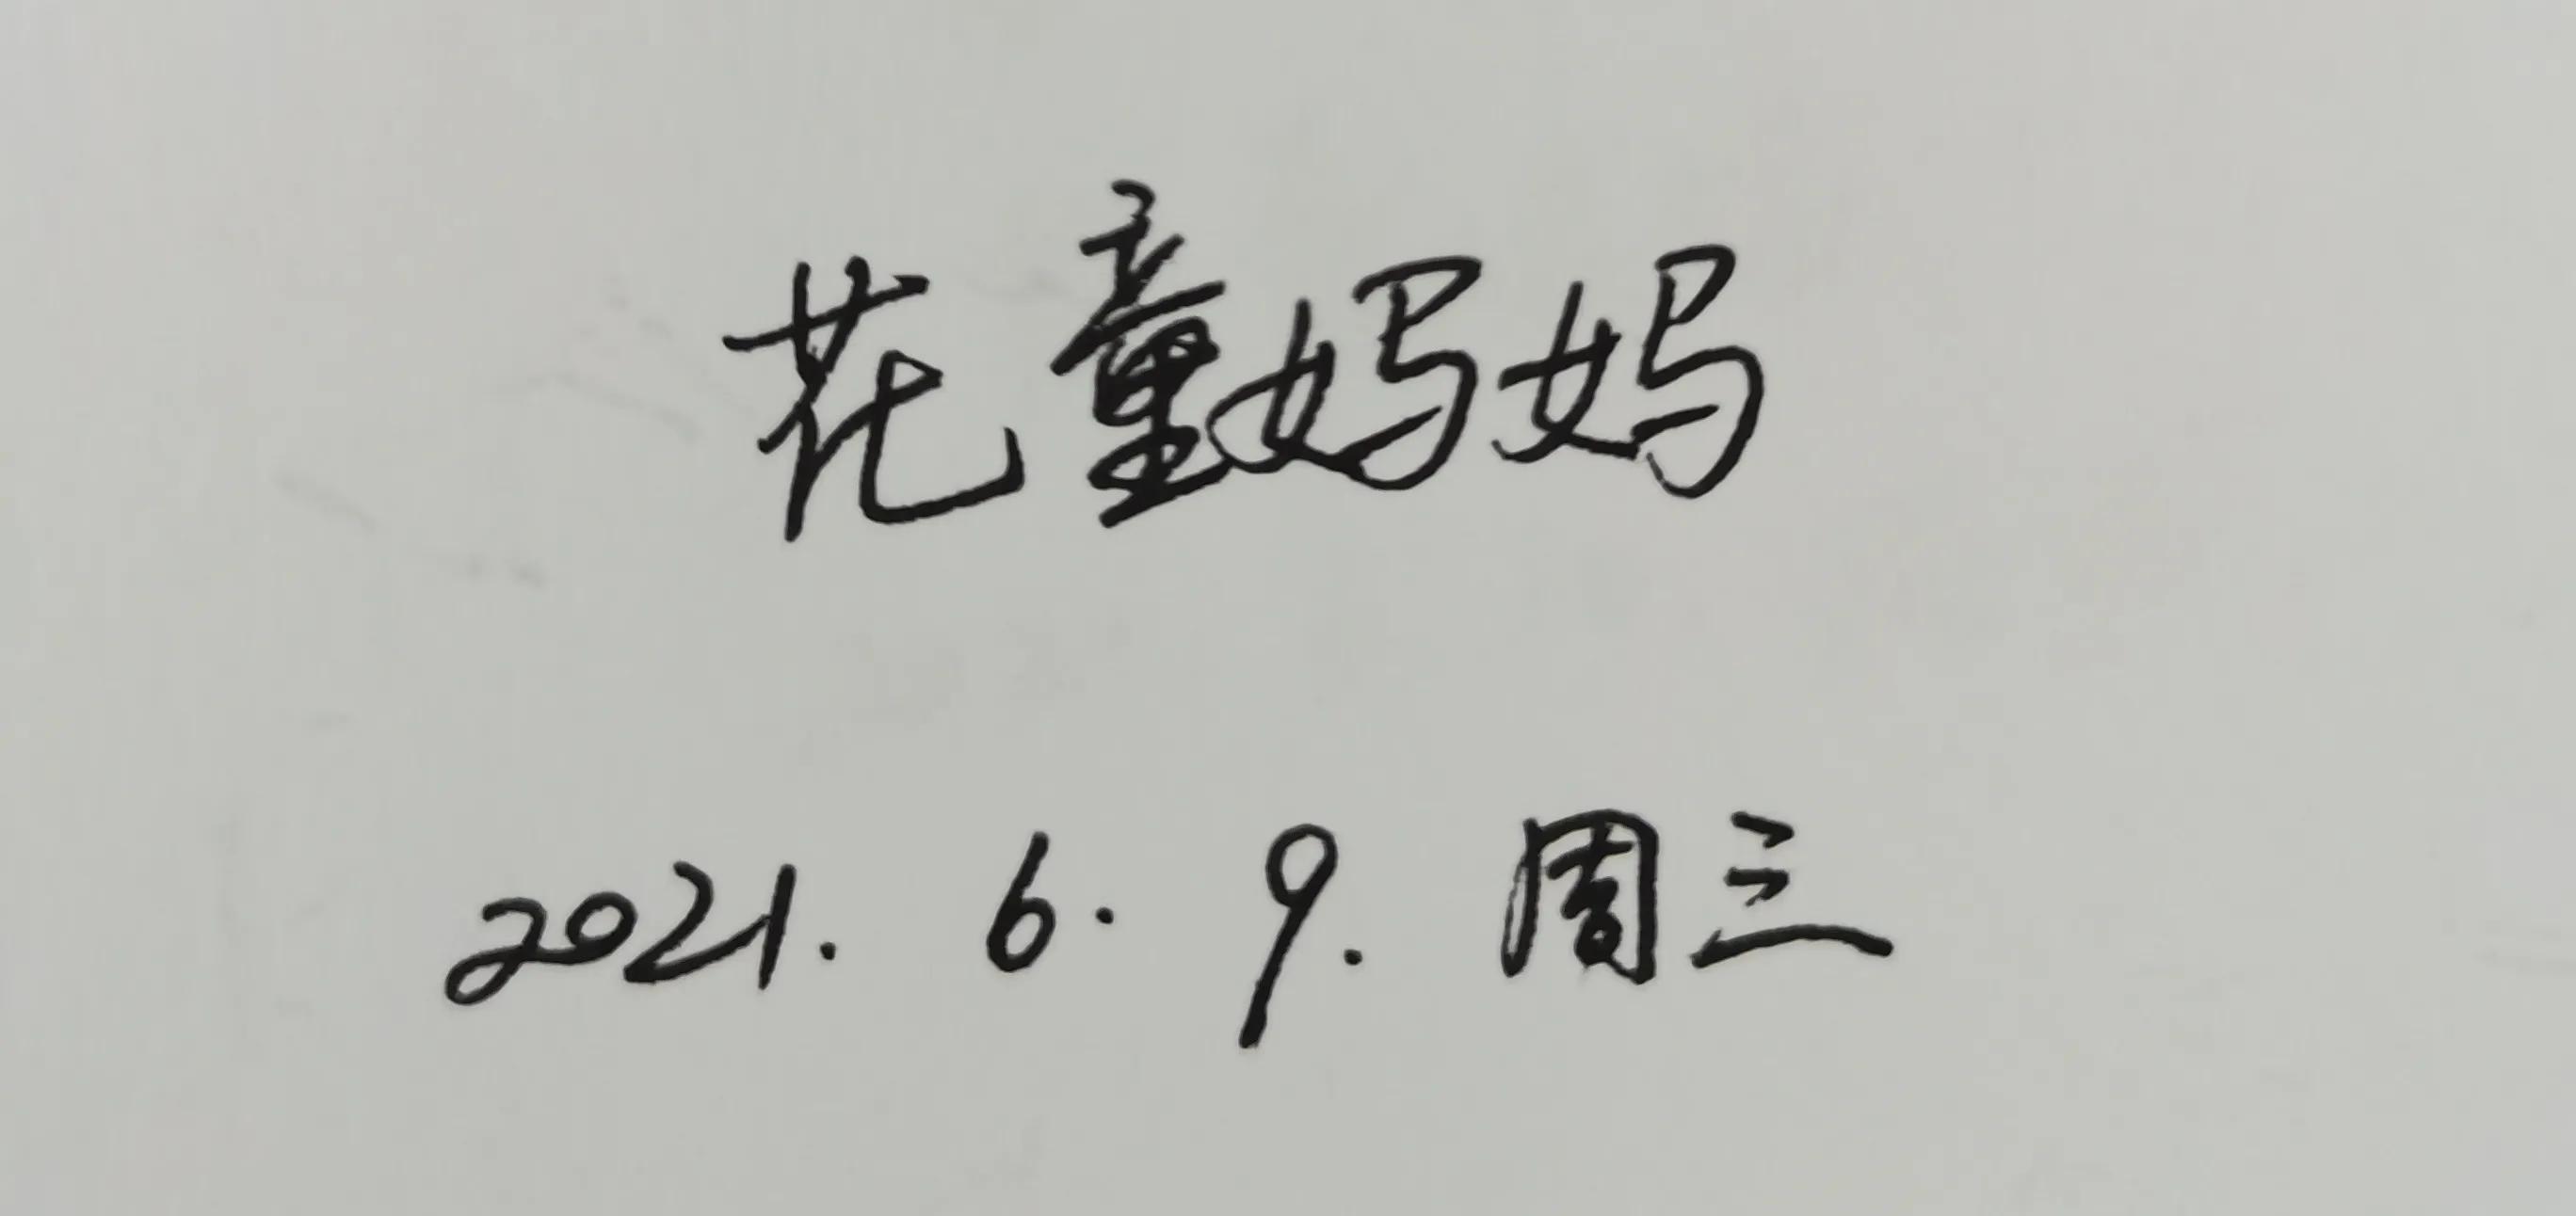 花童妈妈
2021. 6. 9. 周三